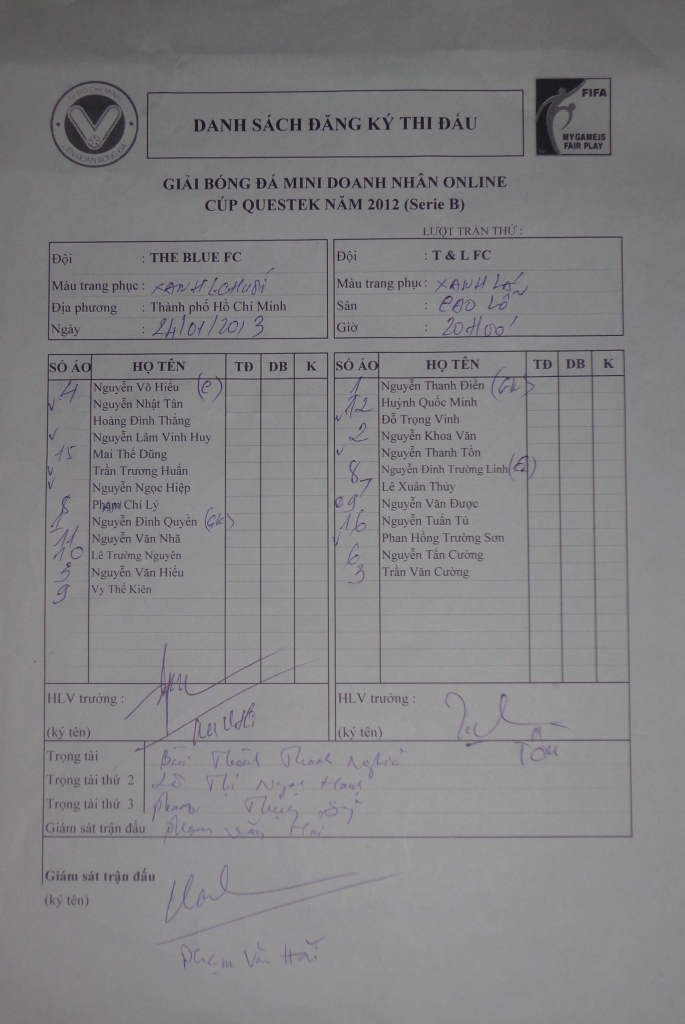 TP HỒ CHÍ MINH
LIÊN ĐOÀN BÓNG ĐÁ
DANH SÁCH ĐĂNG KÝ THI ĐẤU
FIFA
MY GAME IS
FAIR PLAY
GIẢI BÓNG ĐÁ MINI DOANH NHÂN ONLINE
CÚP QUESTEK NĂM 2012 (Serie B)
LƯỢT TRẬN THỨ :
Đội : THE BLUE FC
Màu trang phục : XANH
Địa phương : Thành phố Hồ Chí Minh
Ngày : 24/01/2013
Đội : T & L FC
Màu trang phục : XANH LÁ
Sân : CAO LỖ
Giờ : 20H00
SỐ ÁO HỌ TÊN TĐ DB K
4 Nguyễn Võ Hiếu (C)
Nguyễn Nhật Tân
Hoàng Đình Thắng
Nguyễn Lâm Vinh Huy
15 Mai Thế Dũng
Trần Trương Huấn
Nguyễn Ngọc Hiệp
8 Phan Chí Lý
1 Nguyễn Đình Quyền (GK)
11 Nguyễn Văn Nhã
10 Lê Trường Nguyên
3 Nguyễn Văn Hiếu
9 Vy Thế Kiên
SỐ ÁO HỌ TÊN TĐ DB K
1 Nguyễn Thanh Điền (GK)
12 Huỳnh Quốc Minh
Đỗ Trọng Vinh
2 Nguyễn Khoa Văn
Nguyễn Thanh Tôn
8 Nguyễn Đình Trường Linh (C)
7 Lê Xuân Thủy
09 Nguyễn Văn Được
16 Nguyễn Tuấn Tú
Phan Hồng Trường Sơn
6 Nguyễn Tấn Cường
3 Trần Văn Cường
HLV trưởng :
(ký tên)
HLV trưởng :
(ký tên) TÔN
Trọng tài Thành Thanh Nghĩa
Trọng tài thứ 2 Lê Thị Ngọc
Trọng tài thứ 3 Phạm
Giám sát trận đấu Phạm Văn Hải
Giám sát trận đấu
(ký tên)
Phạm Văn Hải